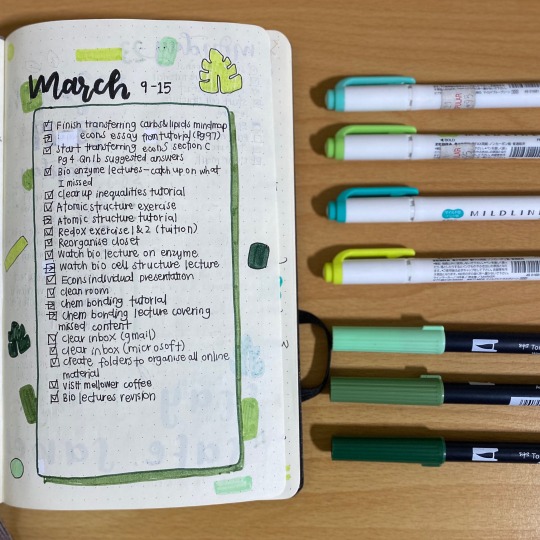 March 9-15
Finish transferring carbs & lipids mindmap
econs essay from tutorial (Pg 97)
Start transferring econs section C
Pg 4 Qn 1b suggested answers
Bio enzyme lectures - catch up on what
I missed
Clear up inequalities tutorial
Atomic structure exercise
Atomic structure tutorial
Redox exercise 1 & 2 (tuition)
Reorganise closet
Watch bio lecture on enzyme
Watch bio cell structure lecture
Econs individual presentation
clean room
chem bonding tutorial
chem bonding lecture covering
missed content
clear inbox (gmail)
clear inbox (microsoft)
create folders to organise all online
material
visit mellower coffee
Bio lectures revision
MILDLINE